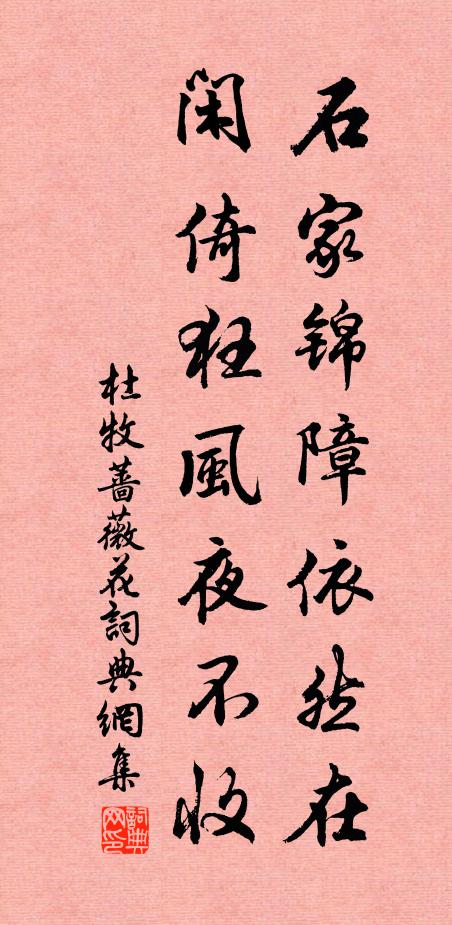 石家锦障依然在
闲倚狂風夜不收
杜牧薔薇花詞典網集
詞典网印